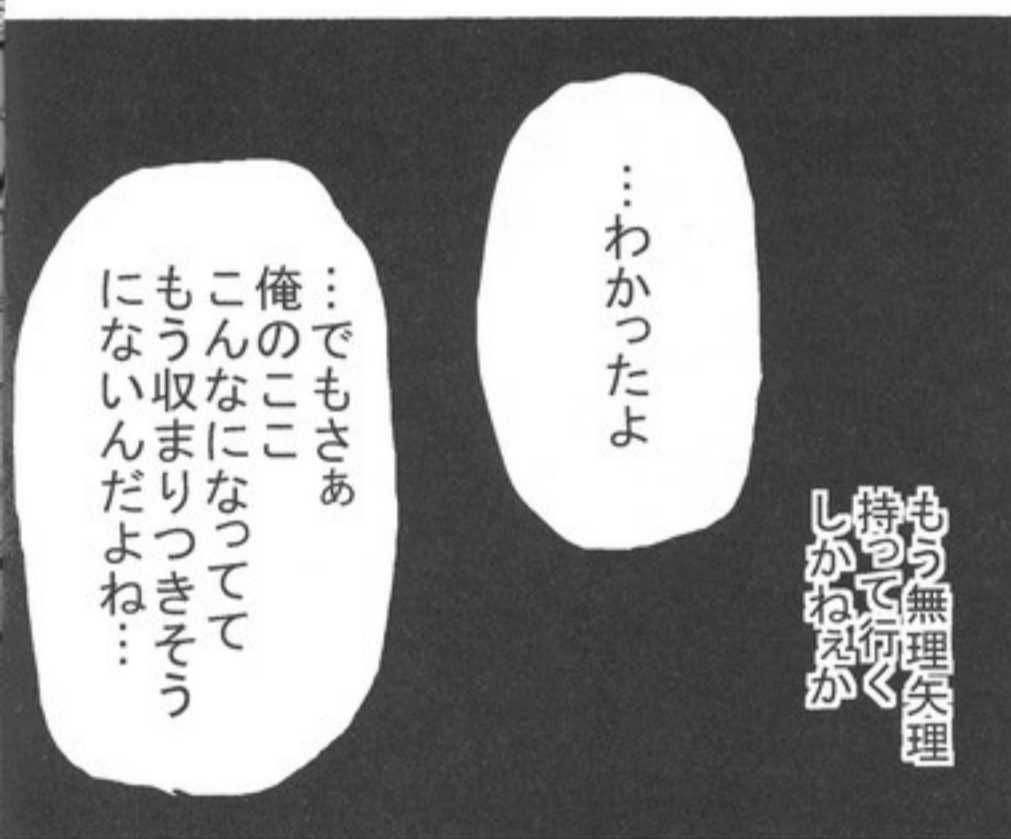 もう無理矢理
持って行く
しかねぇか
…わかったよ
…でもさぁ
俺のここ
こんなになってて
もう収まりつきそう
にないんだよね…